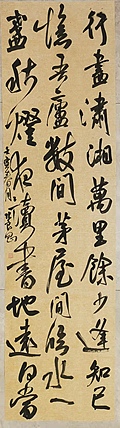 行盡瀟湘萬里餘少逢知己
憶吾廬數間茅屋閒臨水一
盞秋燈夜讀書地遠當